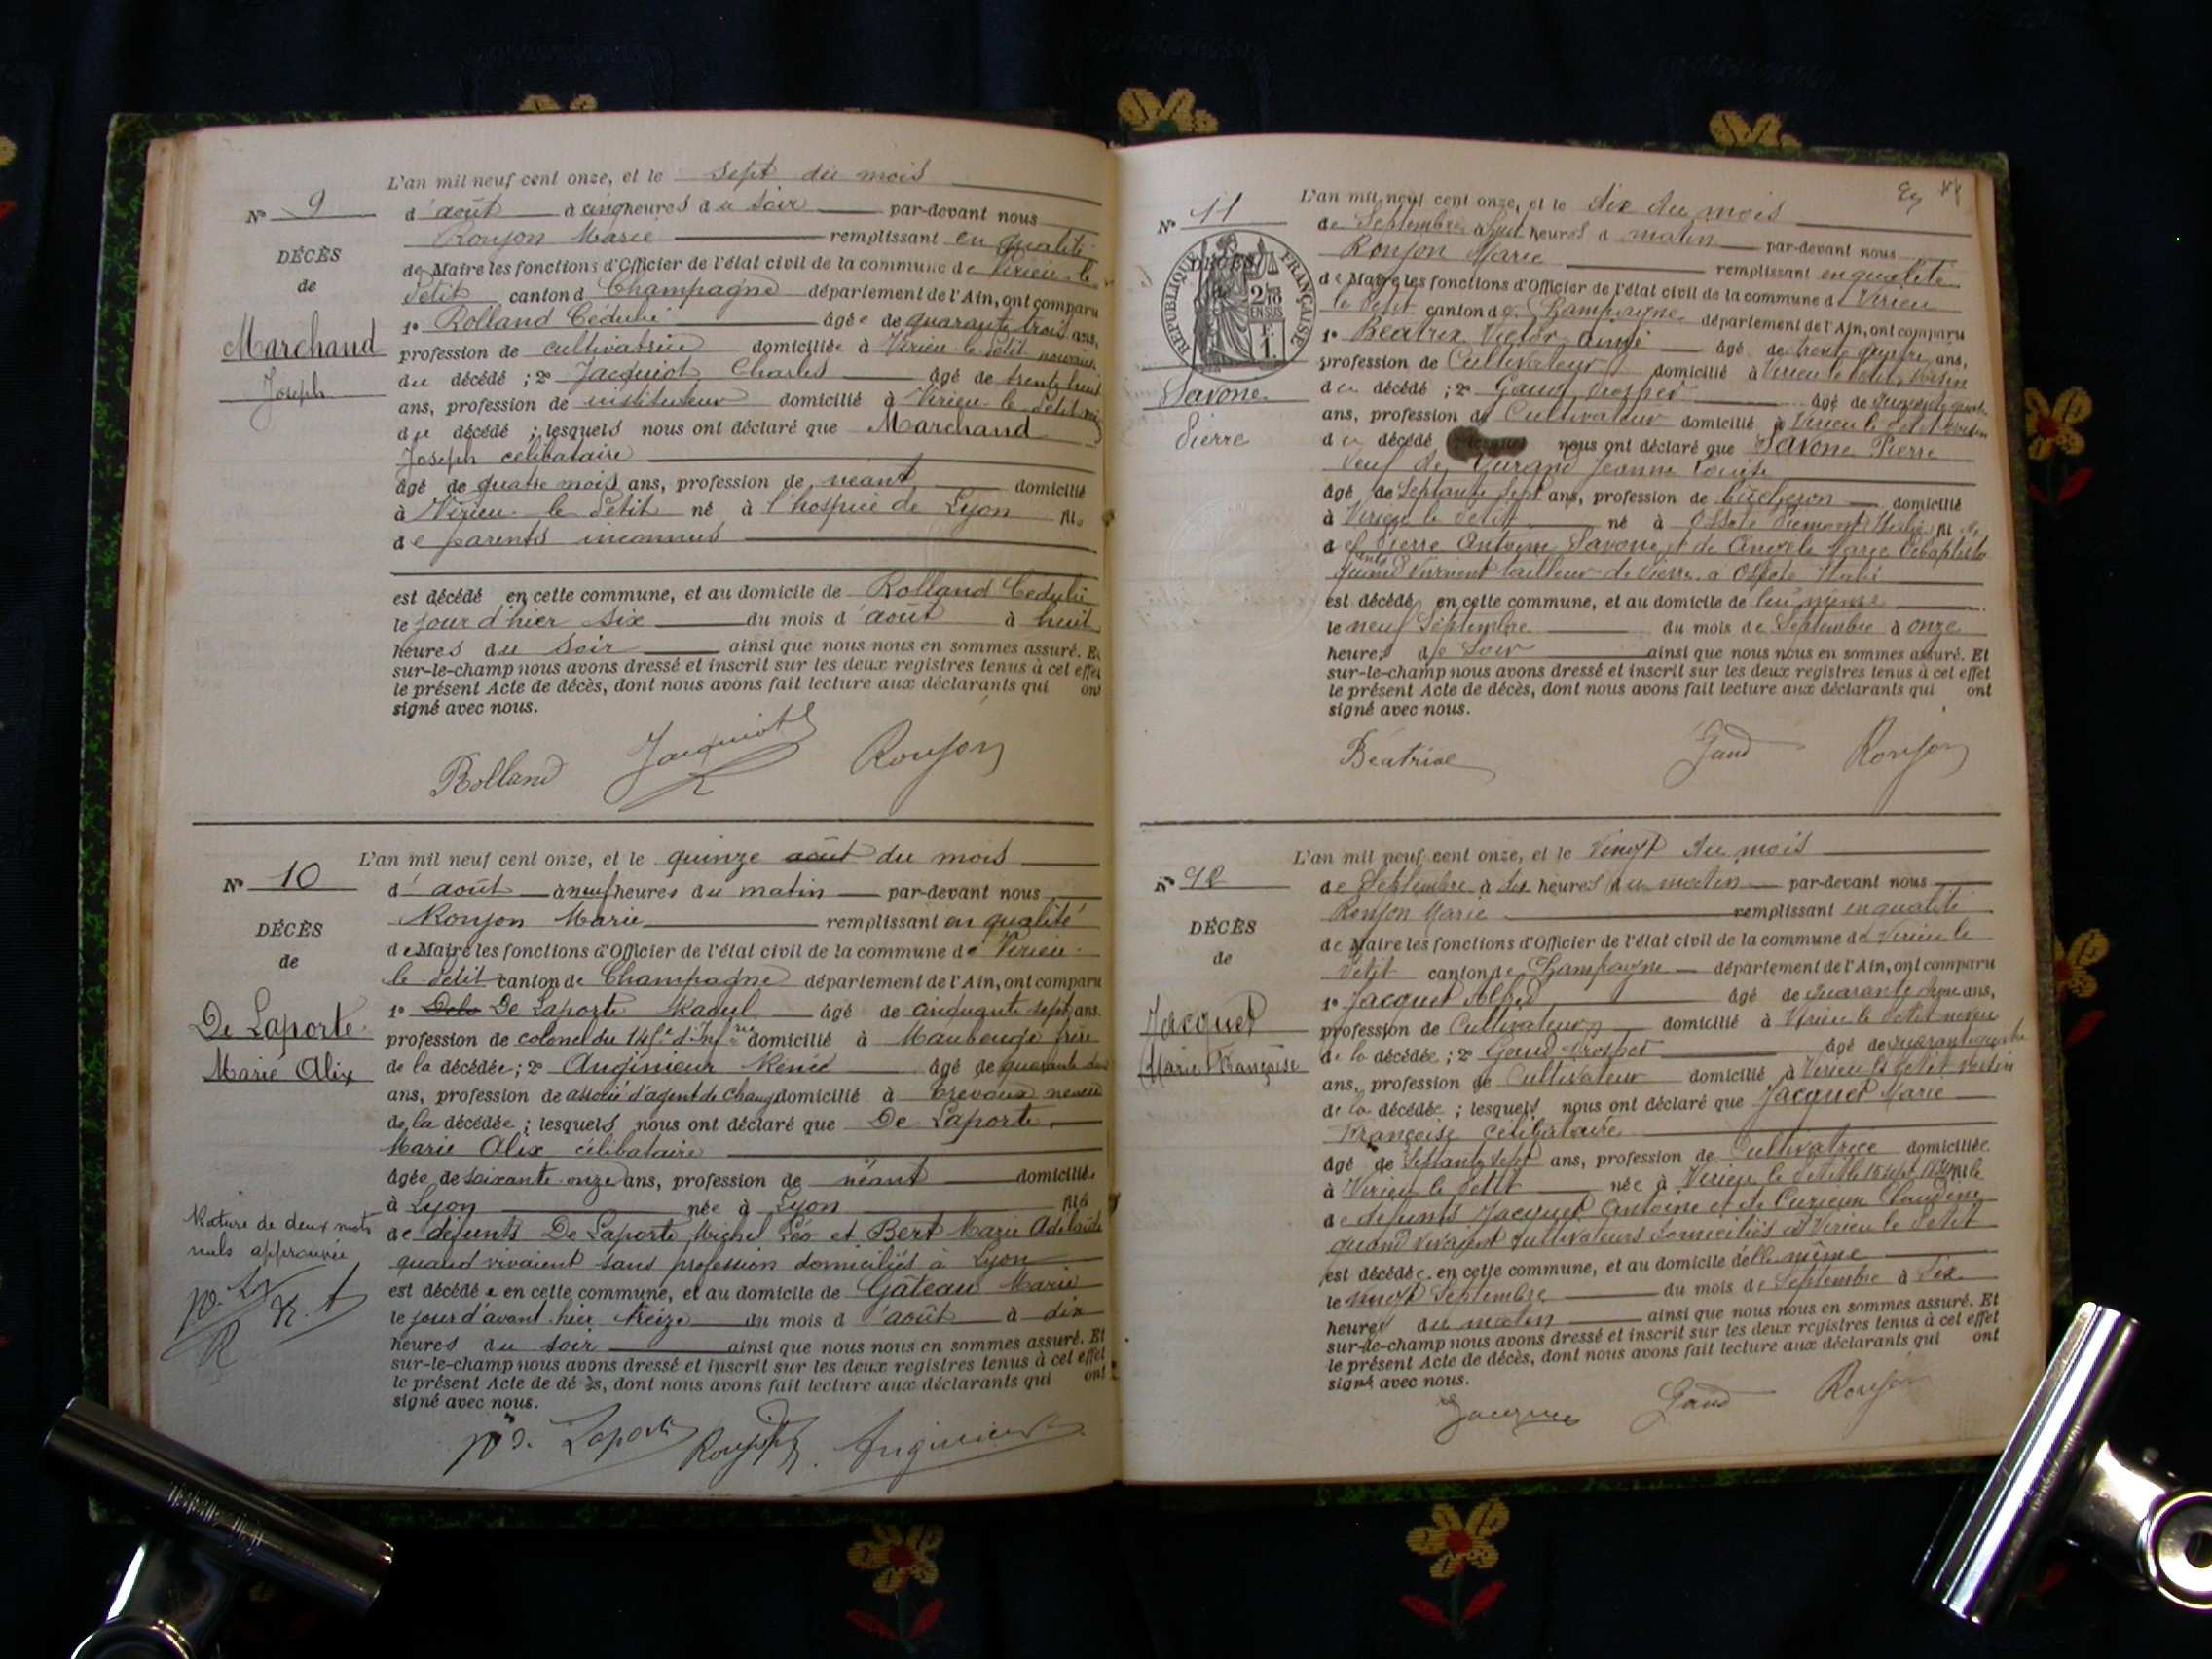 L'an mil neuf cent onze, et le sept du mois
N° 9
d'août à cinq heures du soir par-devant nous
Roujon Marie remplissant en qualité
DÉCÈS
de Maire les fonctions d'Officier de l'état civil de la commune de Virieu-le
de
Petit canton d Champagne département de l'Ain, ont comparu
1° Rolland Cédulie âgée de quarante trois ans,
Marchand
profession de cultivatrice domiciliée à Virieu-le-Petit
Joseph
du décédé ; 2° Jacquiot Charles âgé de trente huit
ans, profession de instituteur domicilié à Virieu-le-Petit
du décédé ; lesquels nous ont déclaré que Marchand
Joseph célibataire
âgé de quatre mois ans, profession de néant domicilié
à Virieu-le-Petit né à l'hospice de Lyon fils
de parents inconnus
est décédé en cette commune, et au domicile de Rolland Cédulie
le jour d'hier six du mois d'août à huit
heures du soir ainsi que nous nous en sommes assuré. Et
sur-le-champ nous avons dressé et inscrit sur les deux registres tenus à cet effet
le présent Acte de décès, dont nous avons fait lecture aux déclarants qui ont
signé avec nous.
Rolland Jacquiot Roujon
L'an mil neuf cent onze, et le quinze août du mois
N° 10
d'août à neuf heures du matin par-devant nous
Roujon Marie remplissant en qualité
DÉCÈS
de Maire les fonctions d'Officier de l'état civil de la commune de Virieu-
de
le Petit canton de Champagne département de l'Ain, ont comparu
1° De Laporte Raoul âgé de cinquante sept ans.
De Laporte
profession de colonel du 145e d'Infrie domicilié à Maubeuge frère
Marie Alix
de la décédée ; 2° Anginieur Renée âgé de quarante
ans, profession de associé d'agent de change domicilié à Trevoux neveu
de la décédée ; lesquels nous ont déclaré que De Laporte
Marie Alix célibataire
âgée de soixante-onze ans, profession de néant domiciliée
à Lyon née à Lyon fille
Rature de deux mots
de défunts De Laporte Michel Léo et Bert Marie Adelaïde
nuls approuvée
quand vivaient sans profession domiciliés à Lyon
est décédée en cette commune, et au domicile de Gâteau Marie
le jour d'avant-hier treize du mois d'août à dix
heures du soir ainsi que nous nous en sommes assuré. Et
sur-le-champ nous avons dressé et inscrit sur les deux registres tenus à cet effet
le présent Acte de décès, dont nous avons fait lecture aux déclarants qui ont
signé avec nous.
Laporte Roujon Anginieur
L'an mil neuf cent onze, et le dix du mois
N° 11
de Septembre à huit heures d matin par-devant nous
Roujon Marie remplissant en qualité
DÉCÈS
RÉPUBLIQUE FRANÇAISE
2/10 EN SUS
F. 1.
de Maire les fonctions d'Officier de l'état civil de la commune de Virieu
le Petit canton de Champagne département de l'Ain, ont comparu
1° Béatrix Victor aîné âgé de trente quatre ans,
profession de Cultivateur domicilié à Virieu le Petit voisin
Savone
Pierre
du décédé ; 2° Gaud Prosper âgé de quarante quatre
ans, profession de Cultivateur domicilié à Virieu le Petit voisin
du décédé nous ont déclaré que Savone Pierre
veuf de Durand Jeanne Louise
âgé de septante sept ans, profession de bûcheron domicilié
à Virieu le Petit né à Piemont Italie fils
de Pierre Antoine Savone et de Angele Marie
quand vivaient tailleur de Pierre à Italie
est décédé en cette commune, et au domicile de lui même
le neuf Septembre du mois de Septembre à onze
heures de soir ainsi que nous nous en sommes assuré. Et
sur-le-champ nous avons dressé et inscrit sur les deux registres tenus à cet effet
le présent Acte de décès, dont nous avons fait lecture aux déclarants qui ont
signé avec nous.
Béatrix Gaud Roujon
L'an mil neuf cent onze, et le vingt du mois
N° 12
de Septembre à dix heures du matin par-devant nous
Roujon Marie remplissant en qualité
DÉCÈS
de Maire les fonctions d'Officier de l'état civil de la commune de Virieu le
de
Petit canton de Champagne département de l'Ain, ont comparu
1° Jacquet Alfred âgé de quarante ans,
Jacquet
profession de Cultivateur domicilié à Virieu le Petit neveu
Marie Françoise
de la décédée ; 2° Gaud Prosper âgé de quarante quatre
ans, profession de Cultivateur domicilié à Virieu le Petit voisin
de la décédée ; lesquels nous ont déclaré que Jacquet Marie
Françoise célibataire
âgé de Septante sept ans, profession de Cultivatrice domiciliée
à Virieu le Petit née à Virieu le Petit le fille
de défunts Jacquet Antoine et de Curieux Claudine
quand vivaient cultivateurs domiciliés à Virieu le Petit
est décédée en cette commune, et au domicile d'elle même
le vingt Septembre du mois de Septembre à six
heures du matin ainsi que nous nous en sommes assuré. Et
sur-le-champ nous avons dressé et inscrit sur les deux registres tenus à cet effet
le présent Acte de décès, dont nous avons fait lecture aux déclarants qui ont
signé avec nous.
Jacquet Gaud Roujon